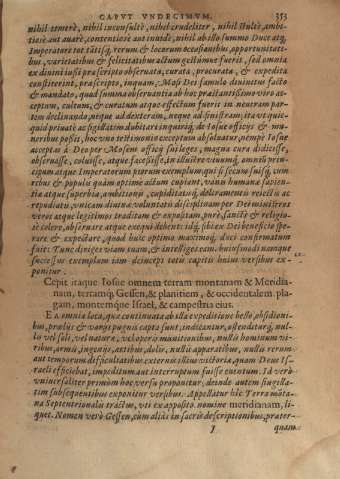 CAPVT VNDECIMVM. 353
nihil temerè, nihil inconsultè, nihil crudeliter, nihil stultè, ambi-
tiosè aut auarè, contentiosè aut inuidè, nihil ab illo summo Duce atq;
Imperatore tot tātisq; rerum & locorum occasionibus, opportunitati-
bus, varietatibus & felicitatibus actum gestumue fuerit, sed omnia
ex diuini iussi præscripto obseruata, curata, procurata, & expedita
constiterit, præscripto, inquam, Mosi Dei famulo diuinitus facto
& mandato, quod summa obseruantia ab hoc præstantissimo viro ac-
ceptum, cultum, & curatum atque effectum fuerit in neutram par-
tem declinando, neque ad dexteram, neque ad sinistram; ita vt quic-
quid priuati ac sigillatim dubitet inquiratq; de Iosue officijs & mu-
neribus possit, hoc vno testimonio exceptum absoluatur, nempe Iosue
acceptas à Deo per Mosem officij sui leges, magna cura didicisse,
obseruasse, coluisse, atque fecisse,
cipum atque Imperatorum piorum exemplum qui si secum suisq; cum
rebus & populo quàm optimè actum cupiant, vanæ humanæ sapien-
tiæ atque superbiæ, ambitioni, cupiditatiq; oblectamento reiectis ac
repudiatis, vnicam diuinæ voluntatis disciplinam per Dei ministros
veros atque legitimos traditam & expositam, purè, sanctè & religio-
sè colere, obseruare atque exequi debent: idq; sibi ex Dei beneficio spe-
rare & expectare, quod huic optimo maximoq; duci confirmatum
fuit: Tunc diriges viam tuam, & intelliges eam. huiusmodi itaneque
successus exemplum iam deinceps toto capitis huius versibus ex-
ponitur.
Cepit itaque Iosue omnem terram montanam & Meridia-
nam, terramq; Gessen, & planitiem, & occidentalem pla-
gam, montemque Israel, & campestria eius.
Ea omnia loca, quæ continuata ab illa expeditione bello, obsidioni-
bus, prælijs & varijs pugnis capta sunt, indicantur, ostenditurq; nul-
lo vel soli, vel naturæ, vel operis munitionibus, nullis hominum vi-
ribus, armis, ingenijs, artibus, dolis, nullis apparatibus, nullis rerum
aut temporum difficultatibus exterius illius victoria, quam Deus Is-
raeli effecerat, impeditum aut interruptum fuisse euentum. Id verò
vniuersaliter primùm hoc versu proponitur, deinde autem singilla-
tim subsequentibus exponitur versibus. Appellatur hîc Terra mōta-
na Septentrionalis tractus, vti ex apposito nomine meridianam, li-
quet. Nomen verò Gessen, cùm aliàs in sacris descriptionibus, præter-
J quam